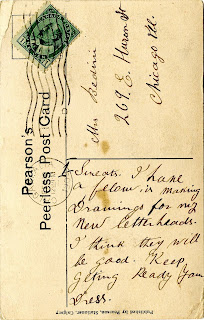 Pearson's
Peerless Post Card
Mrs Bedini
269. E. Huron St
Chicago Ill
Sweats. I have
a felow is making
Drawings for my
New letterheads.
I think they will
be good. Keep
geting Ready your
Dress.
Published by Pearson, Stationer, Calgary